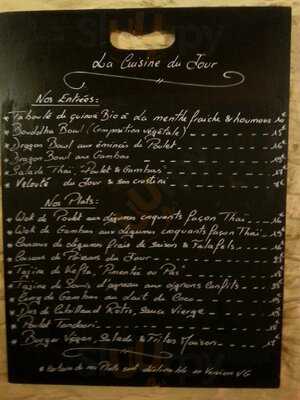 La Cuisine du Jour
Nos Entrées:
* Taboulé de quinoa Bio à la menthe fraîche & houmous
* Bouddha Bowl (Composition végétale)
* Dragon Bowl aux émincés de Poulet
* Dragon Bowl aux Gambas
* Salade Thaï Poulet & Gambas
* Velouté du Jour & ses crostini
Nos Plats:
* Wok de Poulet aux légumes croquants façon Thaï
* Wok de Gambas aux légumes croquants façon Thaï
* Couscous de légumes frais de saison & Falafels
* Couscous de Poisson du Jour
* Tajine de Kefta, "Pimentée ou Pas"
* Tajine de Souris d'agneau aux oignons Confits
* Curry de Gambas au Lait de Coco
* Dos de Cabillaud Rôti, Sauce Vierge
* Poulet Tandoori
* Burger Vegan, Salade & Frites Maison
de nos Plats sont déclinable en Version VG